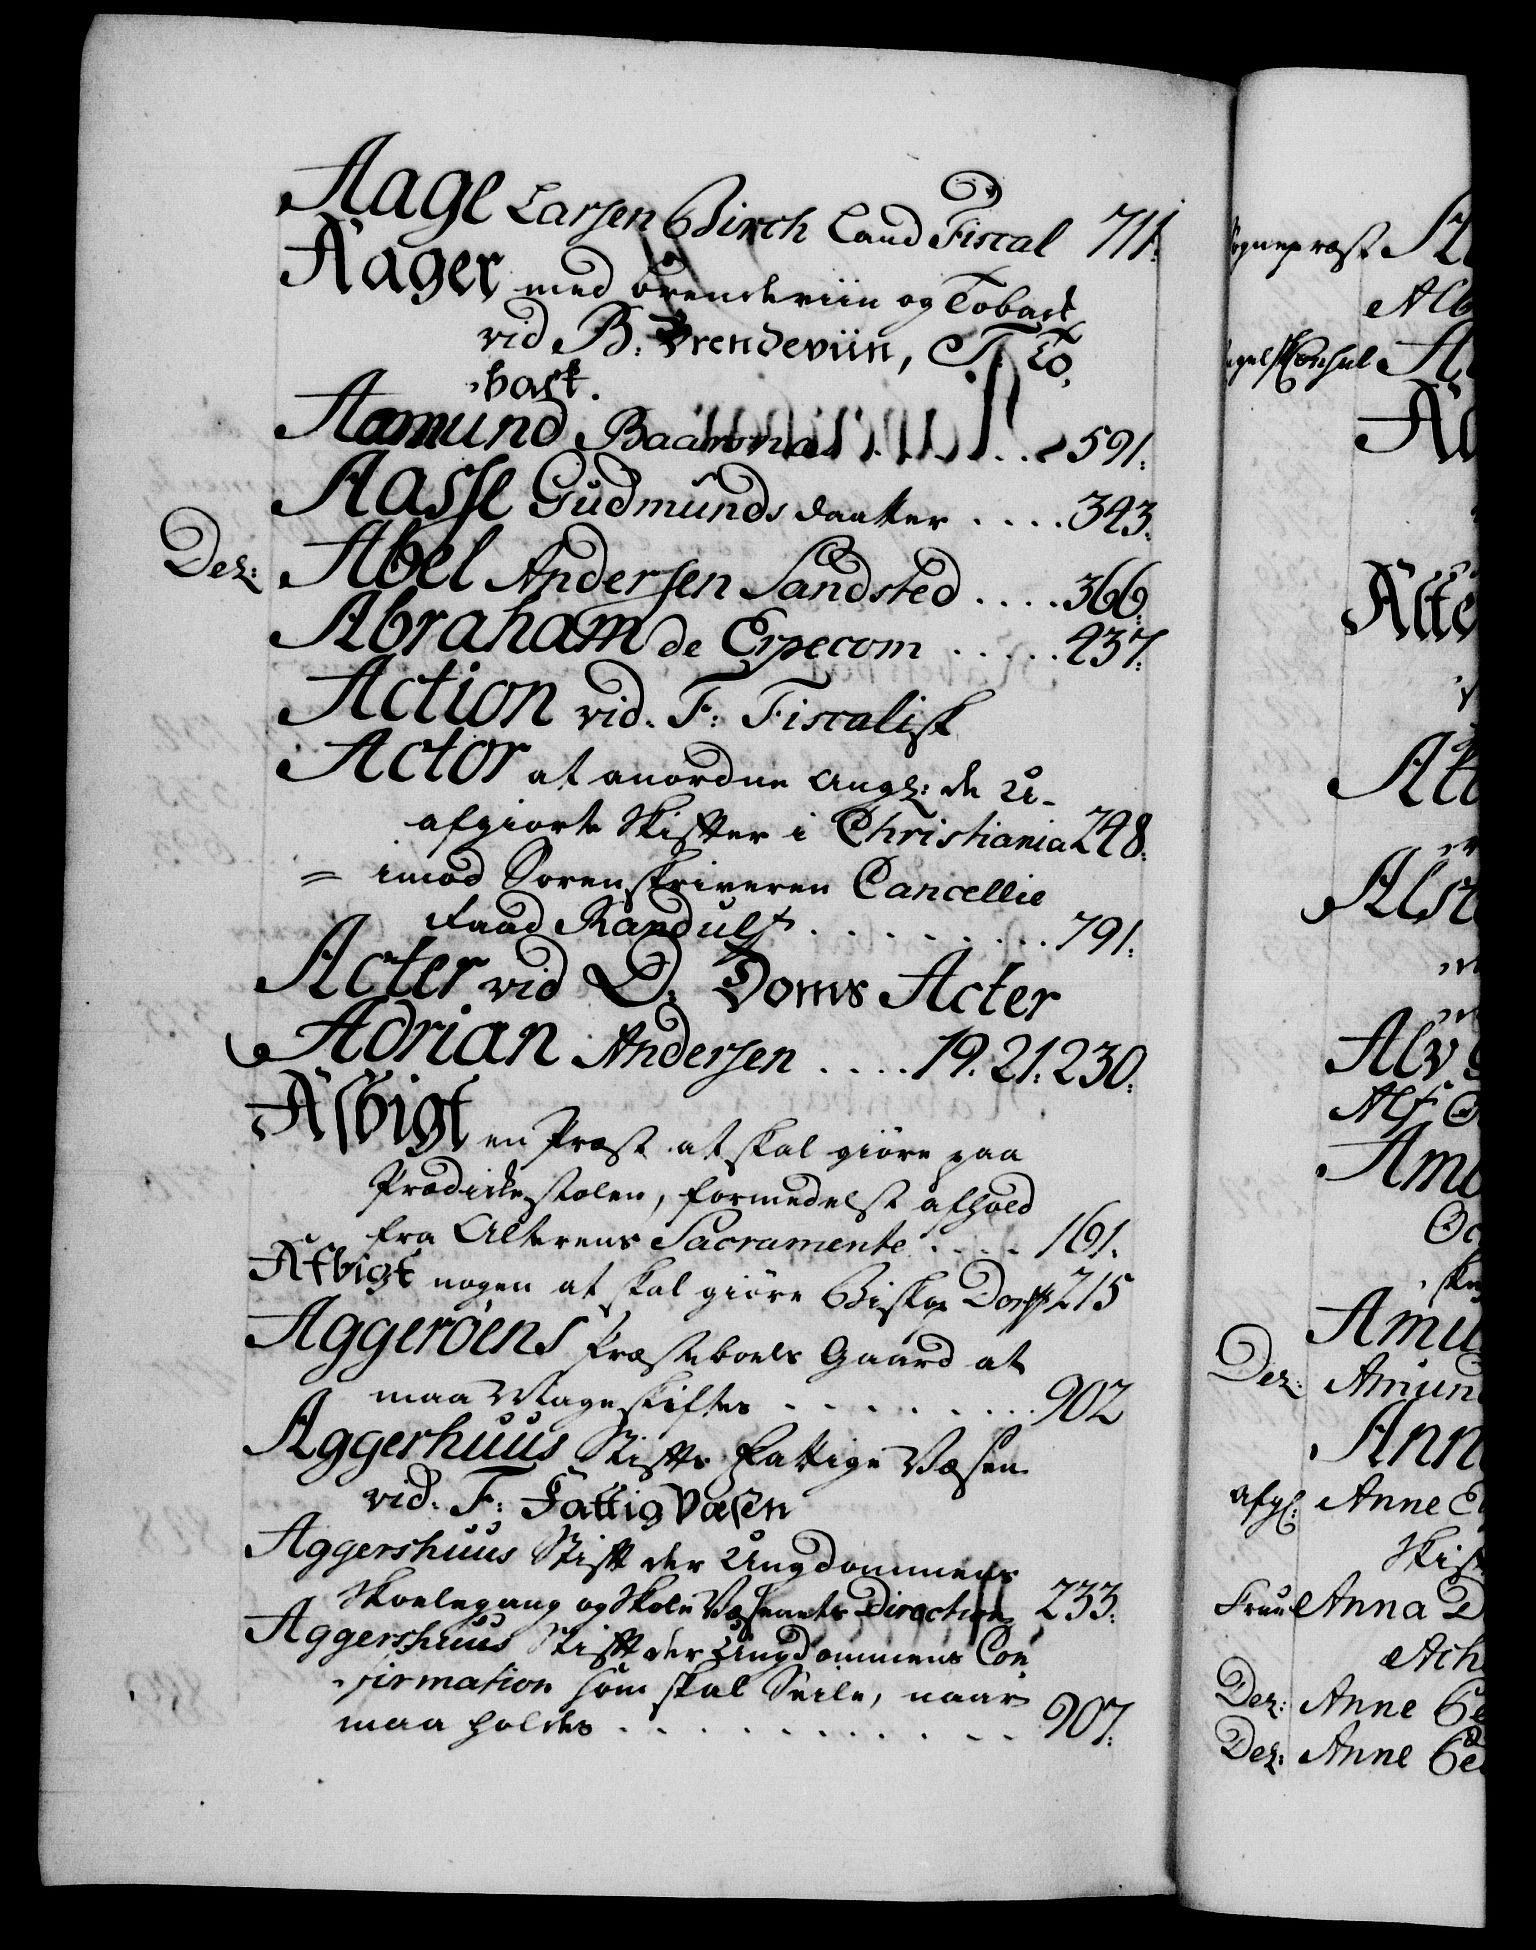 Aage Larsen Birch Land Fiscal 711.
Aager med Brendeviin og Toback
vid B. Brendeviin, T. To,
back.
Aamund Baarsna 591.
Aasse Gudmunds daatter .... 343.
Des: Abel Andersen Sandsted .... 366.
Abraham de Erpecom ..... 437.
Action vid. F: Fiscalisk
Actor at anordne ang: de U-
afgiorte Skiffter i Christiania 248.
= imod Sorenskriveren Cancellie
Raad Randulf ......... 791.
Acter vid D: Doms Acter
Adrian Andersen .... 19. 21. 230.
Afbigt en Præst at skal giöre paa
Prædickestolen, formedelst afhold
fra Alterens Sacramente .... 161.
Afbigt nogen at skal giöre Biskop Dorph 215
Aggeröens Præsteboels Gaard at
maa Mageskiftes ......... 902
Aggerhuus Stifts Fattige Væsen
vid. F: Fattig Væsen
Aggershuus Stift der Ungdommens
Skoelegang og Skole Væsenets Direction 233.
Aggershuus Stift der Ungdommens Con
firmation som skal Seile, naar
maa holdes ........... 907.
Sognepræst A
Alb
Consul A
A
Afte
Ak
Alst
Alv
Alf
Am
Oc
Amu
Des: Amun
Ann
afg: Anne E
Skif
Fruue Anna D
Ach
Des: Anne Ce
Des: Anne Ce